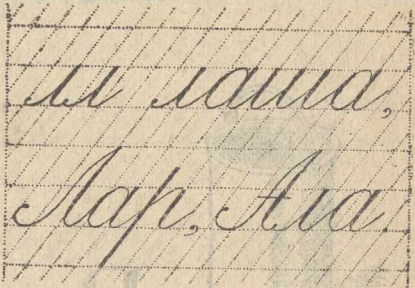 ил лаша,
Лар, Ала.